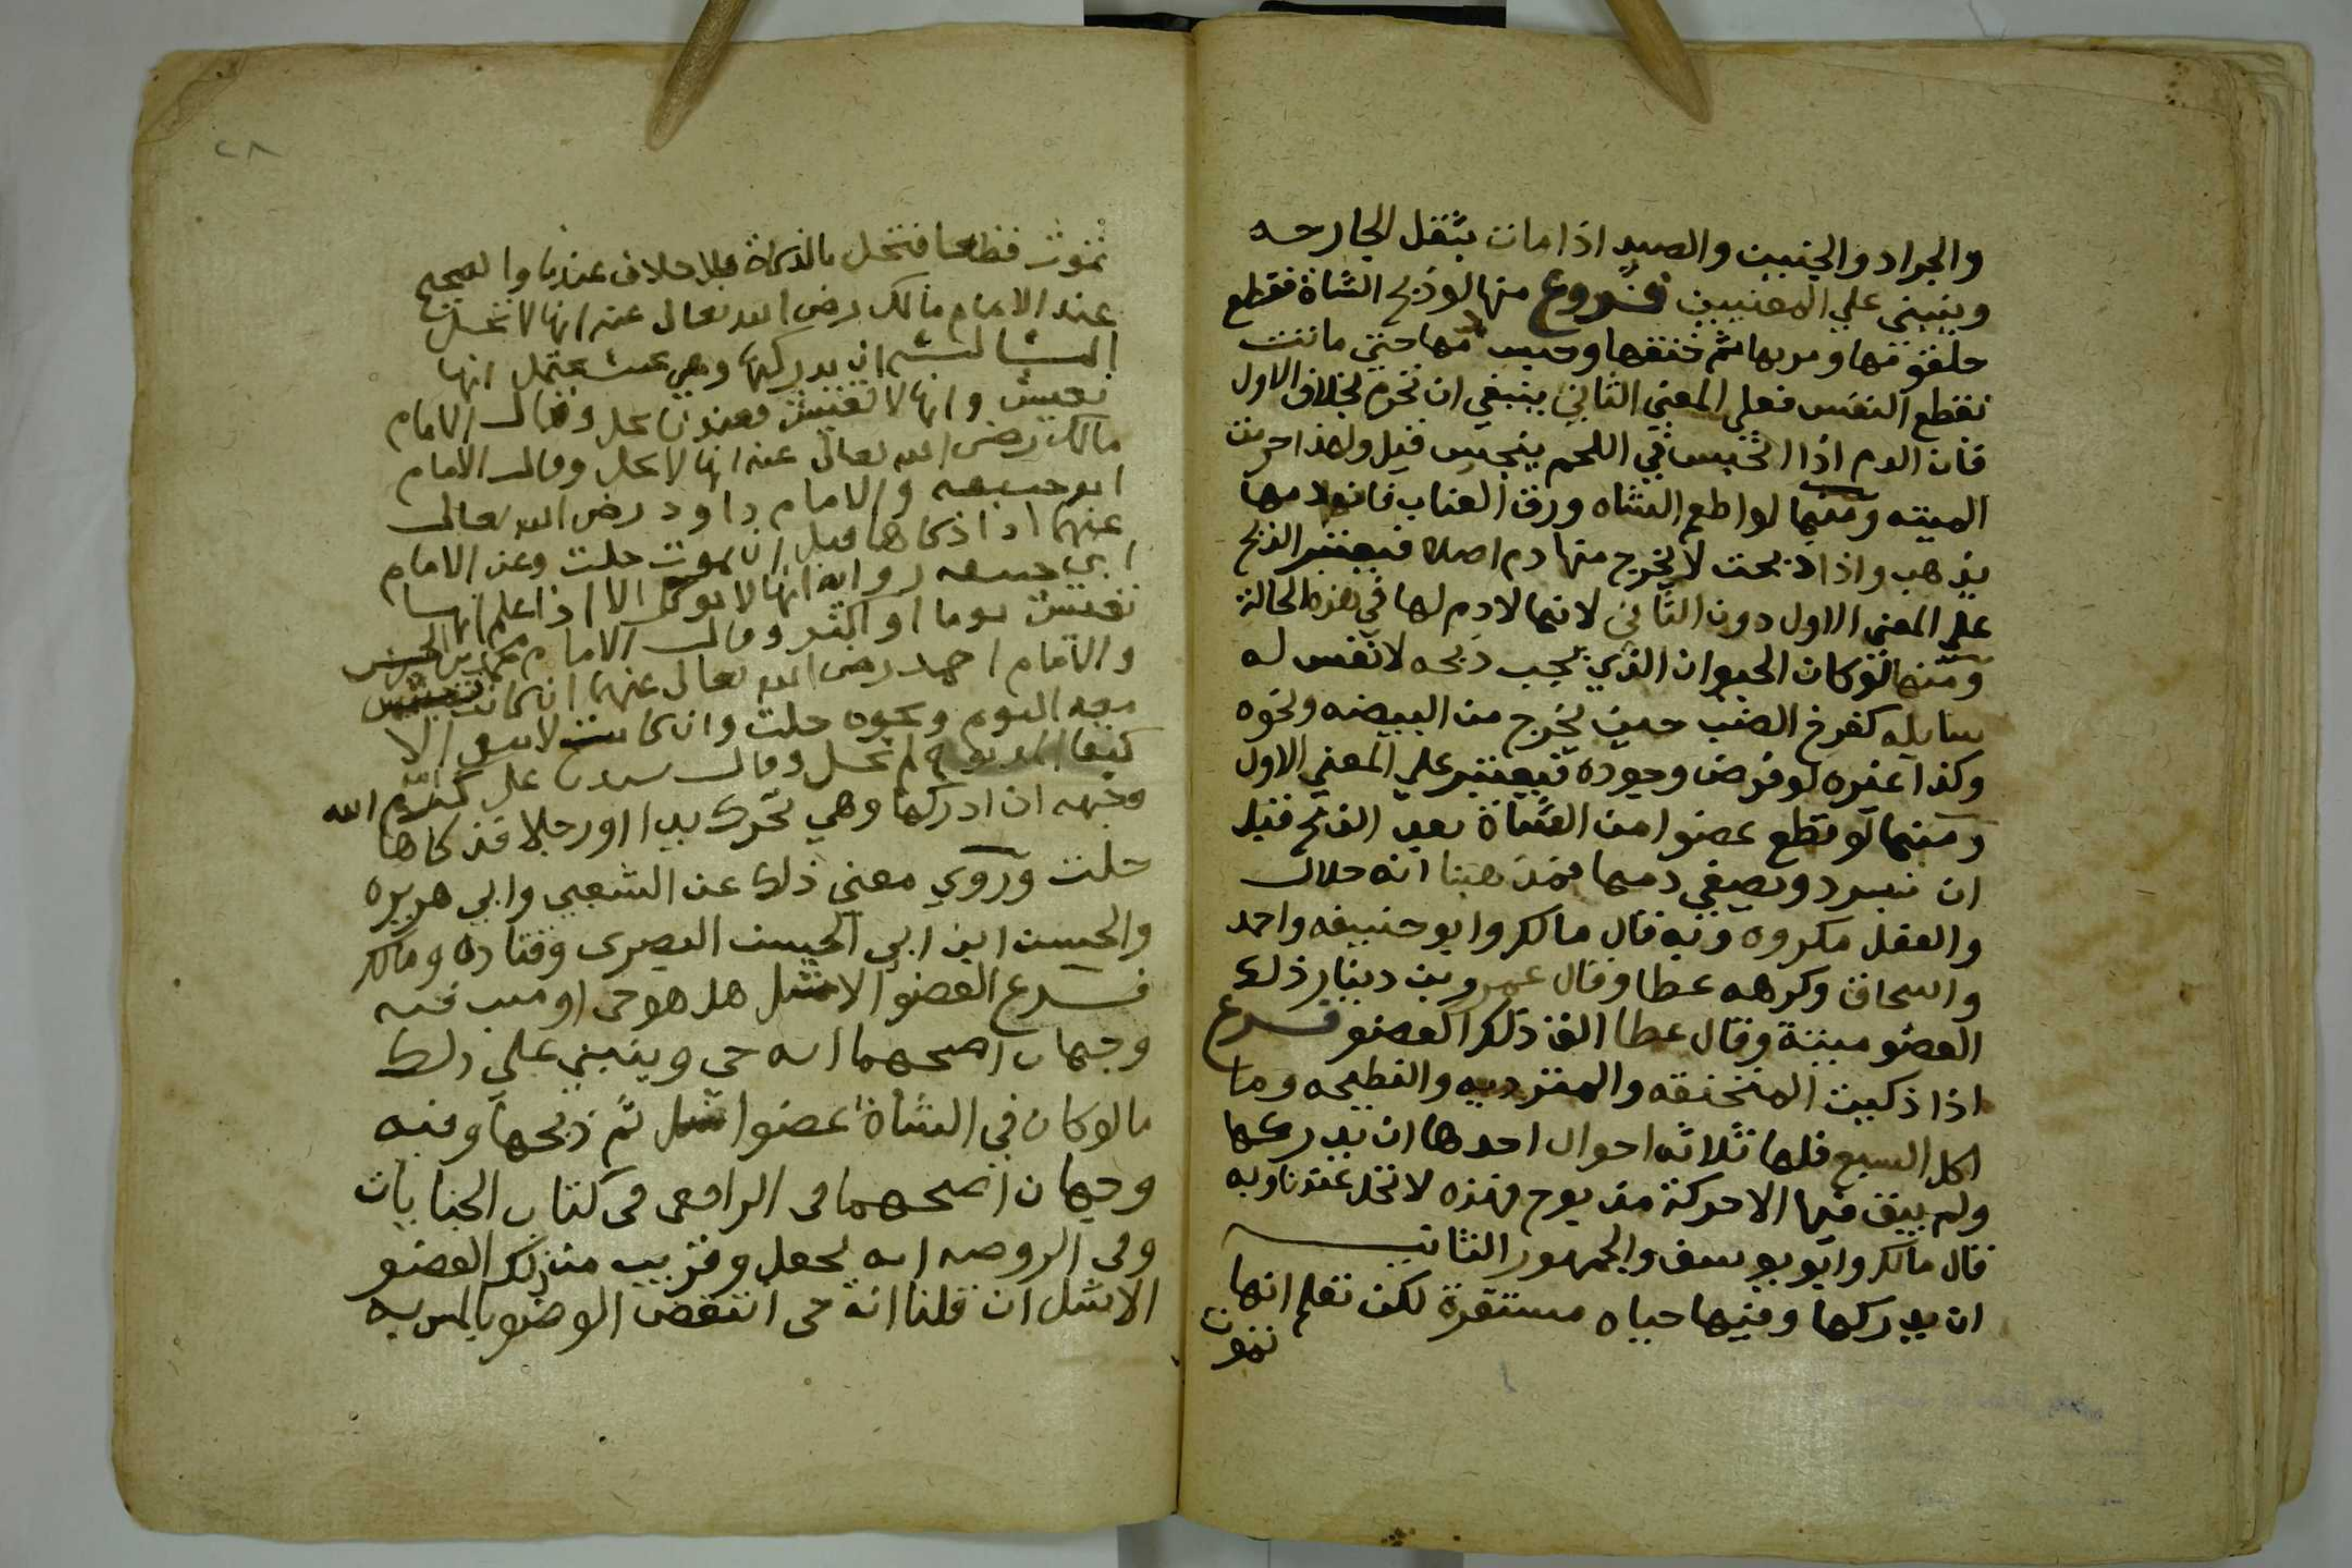 والجراد والجنين والصيد اذا مات بثقل الجارحه
وينبني علي المعنيين فروع منها لو ذبح الشاة فقطع
حلقومها ومريها ثم خنقها وحبس دمها حتي ماتت
تقطع النفس فعلي المعني الثاني ينبغي ان تحرم بخلاف الاول
فان الدم اذا انحبس في اللحم ينجس قيل ولهذا حرمت
الميته ومنها لو اطعم الشاه ورق العناب فان دمها
يذهب واذا ذبحت لا يخرج منها دم اصلا فيعتبر الذبح
علي المعني الاول دون الثاني لانها لا دم لها في هذه الحالة
ومنها لو كان الحيوان الذي يجب ذبحه لا نفس له
سايله كفرخ الضب حين يخرج من البيضه ونحوه
وكذا غيره لو فرض وجوده فيعتبر علي المعني الاول
ومنها لو قطع عضوا من الشاة بعد الذبح قبل
ان تبرد ويصفي دمها فمذهبنا انه حلال
والفعل مكروه وبه قال مالك وابو حنيفه واحمد
واسحاق وكرهه عطا وقال عمرو بن دينار ذلك
العضو ميتة وقال عطا الق ذلك العضو فرع
اذا ذكيت المنخنقه والمترديه والنطيحه وما
اكل السبع فلها ثلاثه احوال احدها ان يدركها
ولم يبق فيها الا حركة مذبوح فهذه لا تحل عندنا وبه
قال مالك وابو يوسف والجمهور الثاني
ان يدركها وفيها حياه مستقرة لكن تعلم انها
تموت
٢٨
تموت قطعا فتحل بالذكاة بلا خلاف عندنا والصحيح
عند الامام مالك رضي الله تعالى عنه انها لا تحل
الثالث ان يدركها وهي بحيث يحتمل انها
تعيش وانها لا تعيش فعندنا تحل وقال الامام
مالك رضي الله تعالى عنه انها لا تحل وقال الامام
ابو حنيفه والامام داود رضي الله تعالى
عنهما اذا ذكاها قبل ان تموت حلت وعن الامام
ابي حنيفه روايه انها لا توكل الا اذا علم انها
تعيش يوما او اكثر وقال الامام محمد بن الحسن
والامام احمد رضي الله تعالى عنهما ان كانت تعيش
معه اليوم ونحوه حلت وان كانت لا تبقى الا
كبقا المذبوح لم تحل وقال سيدنا علي كرم الله
وجهه ان ادركها وهي تحرك يدا او رجلا فذكاها
حلت وروي معني ذلك عن الشعبي وابي هريره
والحسن ابن ابي الحسن البصري وقتاده ومالك
فرع العضو الاشل هل هو حي او ميت فيه
وجهان اصحهما انه حي وينبني علي ذلك
ما لو كان في الشاة عضوا اشل ثم ذبحها وفيه
وجهان اصحهما في الرافعي في كتاب الجنايات
وفي الروضه انه يحل وقريب من ذلك العضو
الاشل ان قلنا انه حي انتقض الوضو بالمس به